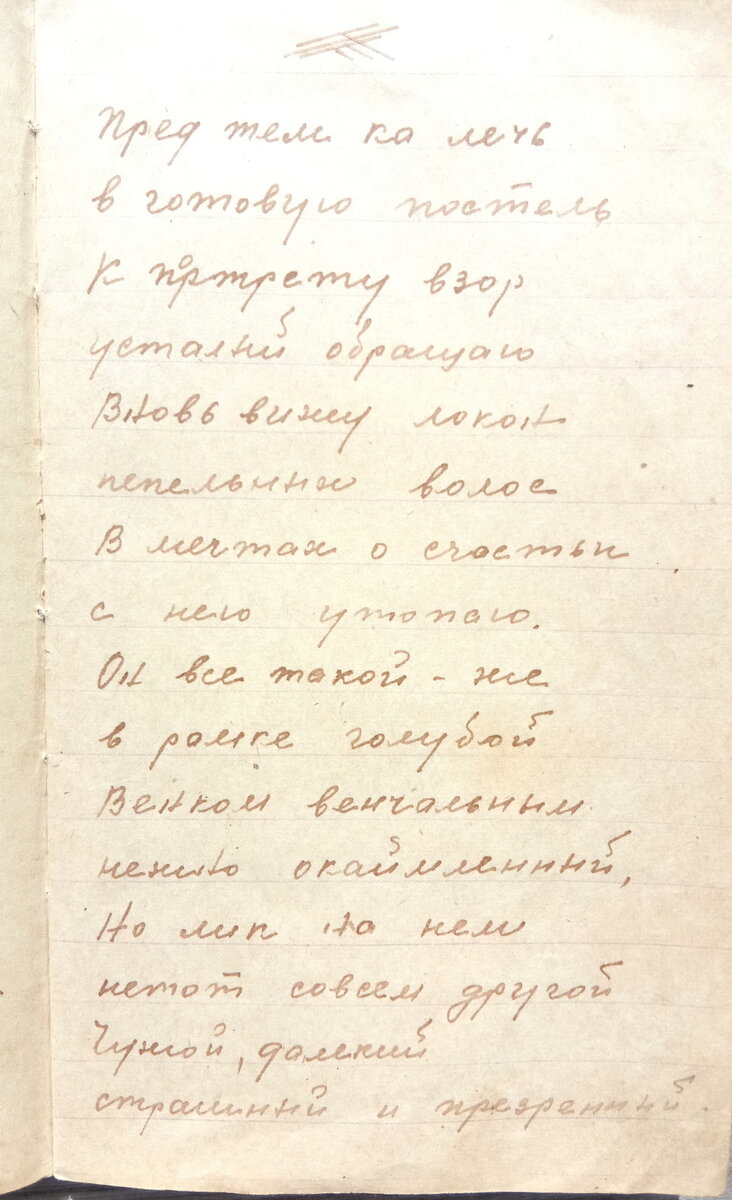 Пред тем ка лечь
в готовую постель
К портрету взор
усталый обращаю
Вновь вижу локон
пепельных волос
В мечтах о счастьи
с нею утопаю.
Он все такой - же
в рамке голубой
Венком венчальным
нежно окаймленный,
Но лик на нем
нетот совсем другой
Чужой, далекий
страшный и презренный.